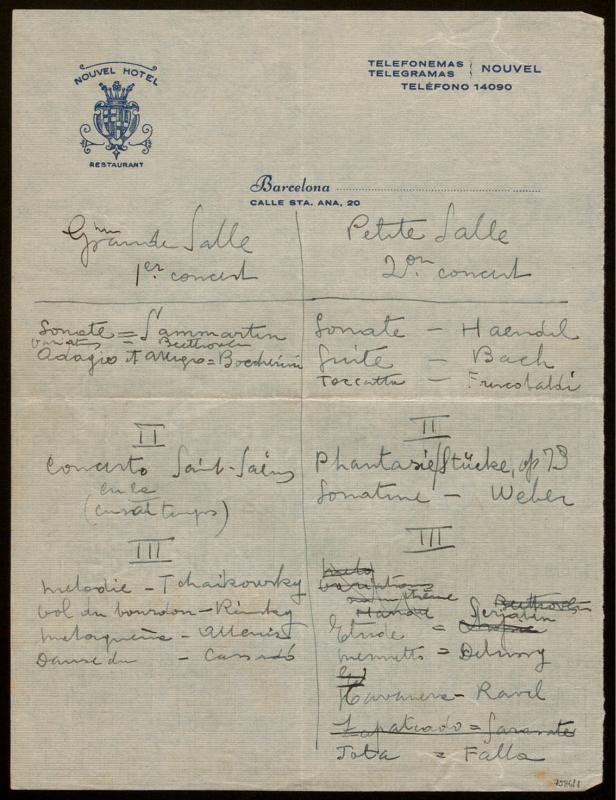 NOUVEL HOTEL
RESTAURANT
TELEFONEMAS
TELEGRAMAS
NOUVEL
TELÉFONO 14090
Barcelona
CALLE STA. ANA, 20
Grande Salle
1er concert
Sonate = Sammartin
Beethoven
Adagio et Allegro = Boccherini
II
Concerto Saint-Saëns
III
Melodie - Tchaikowsky
Vol du bourdon - Rimsky
Malagueña - Albeniz
Danse du - Cassadó
Petite Salle
2on concert
Sonate - Haendel
Suite - Bach
Toccatta - Frescobaldi
II
Phantasie/Stücke, op 73
Sonatine - Weber
III
variations
thème
Beethoven
Etude = Scriabin
menuetto = Debussy
Havanera - Ravel
Zapateado = Sarasate
Jota = Falla
7586/1